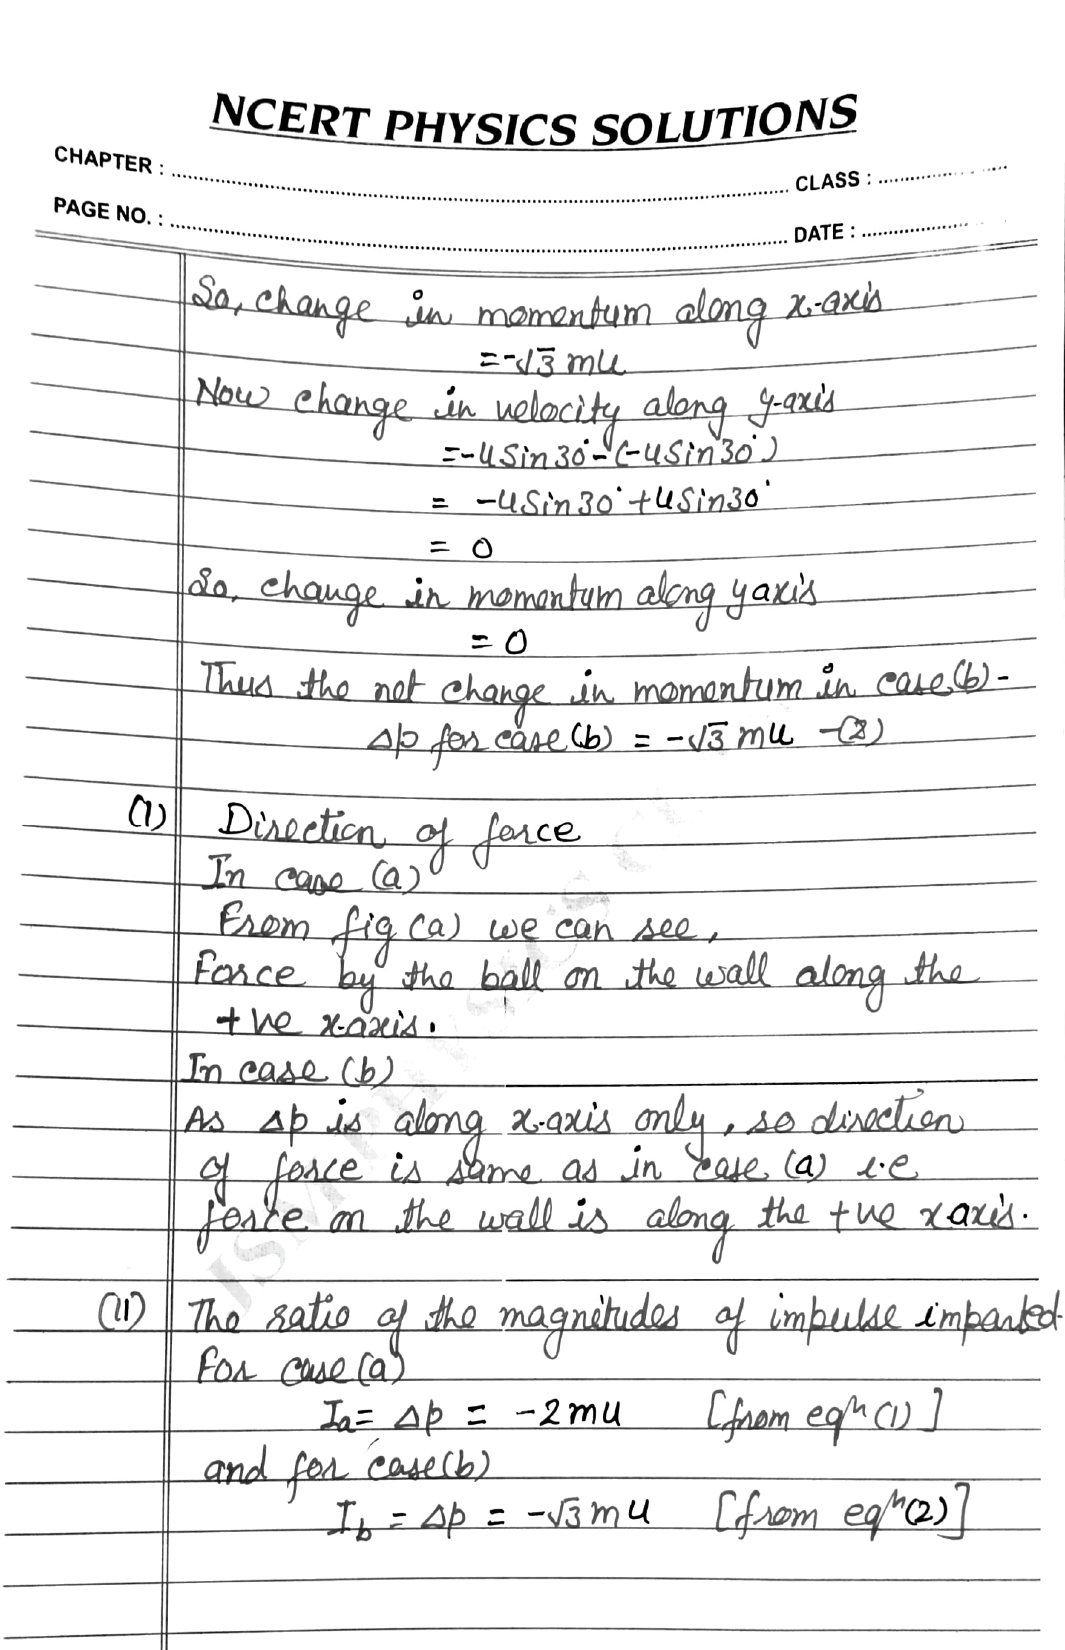 NCERT PHYSICS SOLUTIONS
CHAPTER : ........ CLASS : ........
PAGE NO. : ........ DATE : ........
So, change in momentum along x-axis
= -√3 mu
Now change in velocity along y-axis
= -u Sin 30° - (-u Sin 30°)
= -u Sin 30° + u Sin 30°
= 0
So, change in momentum along y axis
= 0
Thus the net change in momentum in case (b) -
Δp for case (b) = -√3 mu -(2)
(I) Direction of force
In case (a)
From fig (a) we can see,
Force by the ball on the wall along the
+ve x-axis.
In case (b)
As Δp is along x-axis only, so direction
of force is same as in case (a) i.e
force on the wall is along the +ve x axis.
(II) The ratio of the magnitudes of impulse imparted.
For case (a)
Ia = Δp = -2mu [from eqⁿ (1)]
and for case (b)
I_b = Δp = -√3 mu [from eqⁿ (2)]